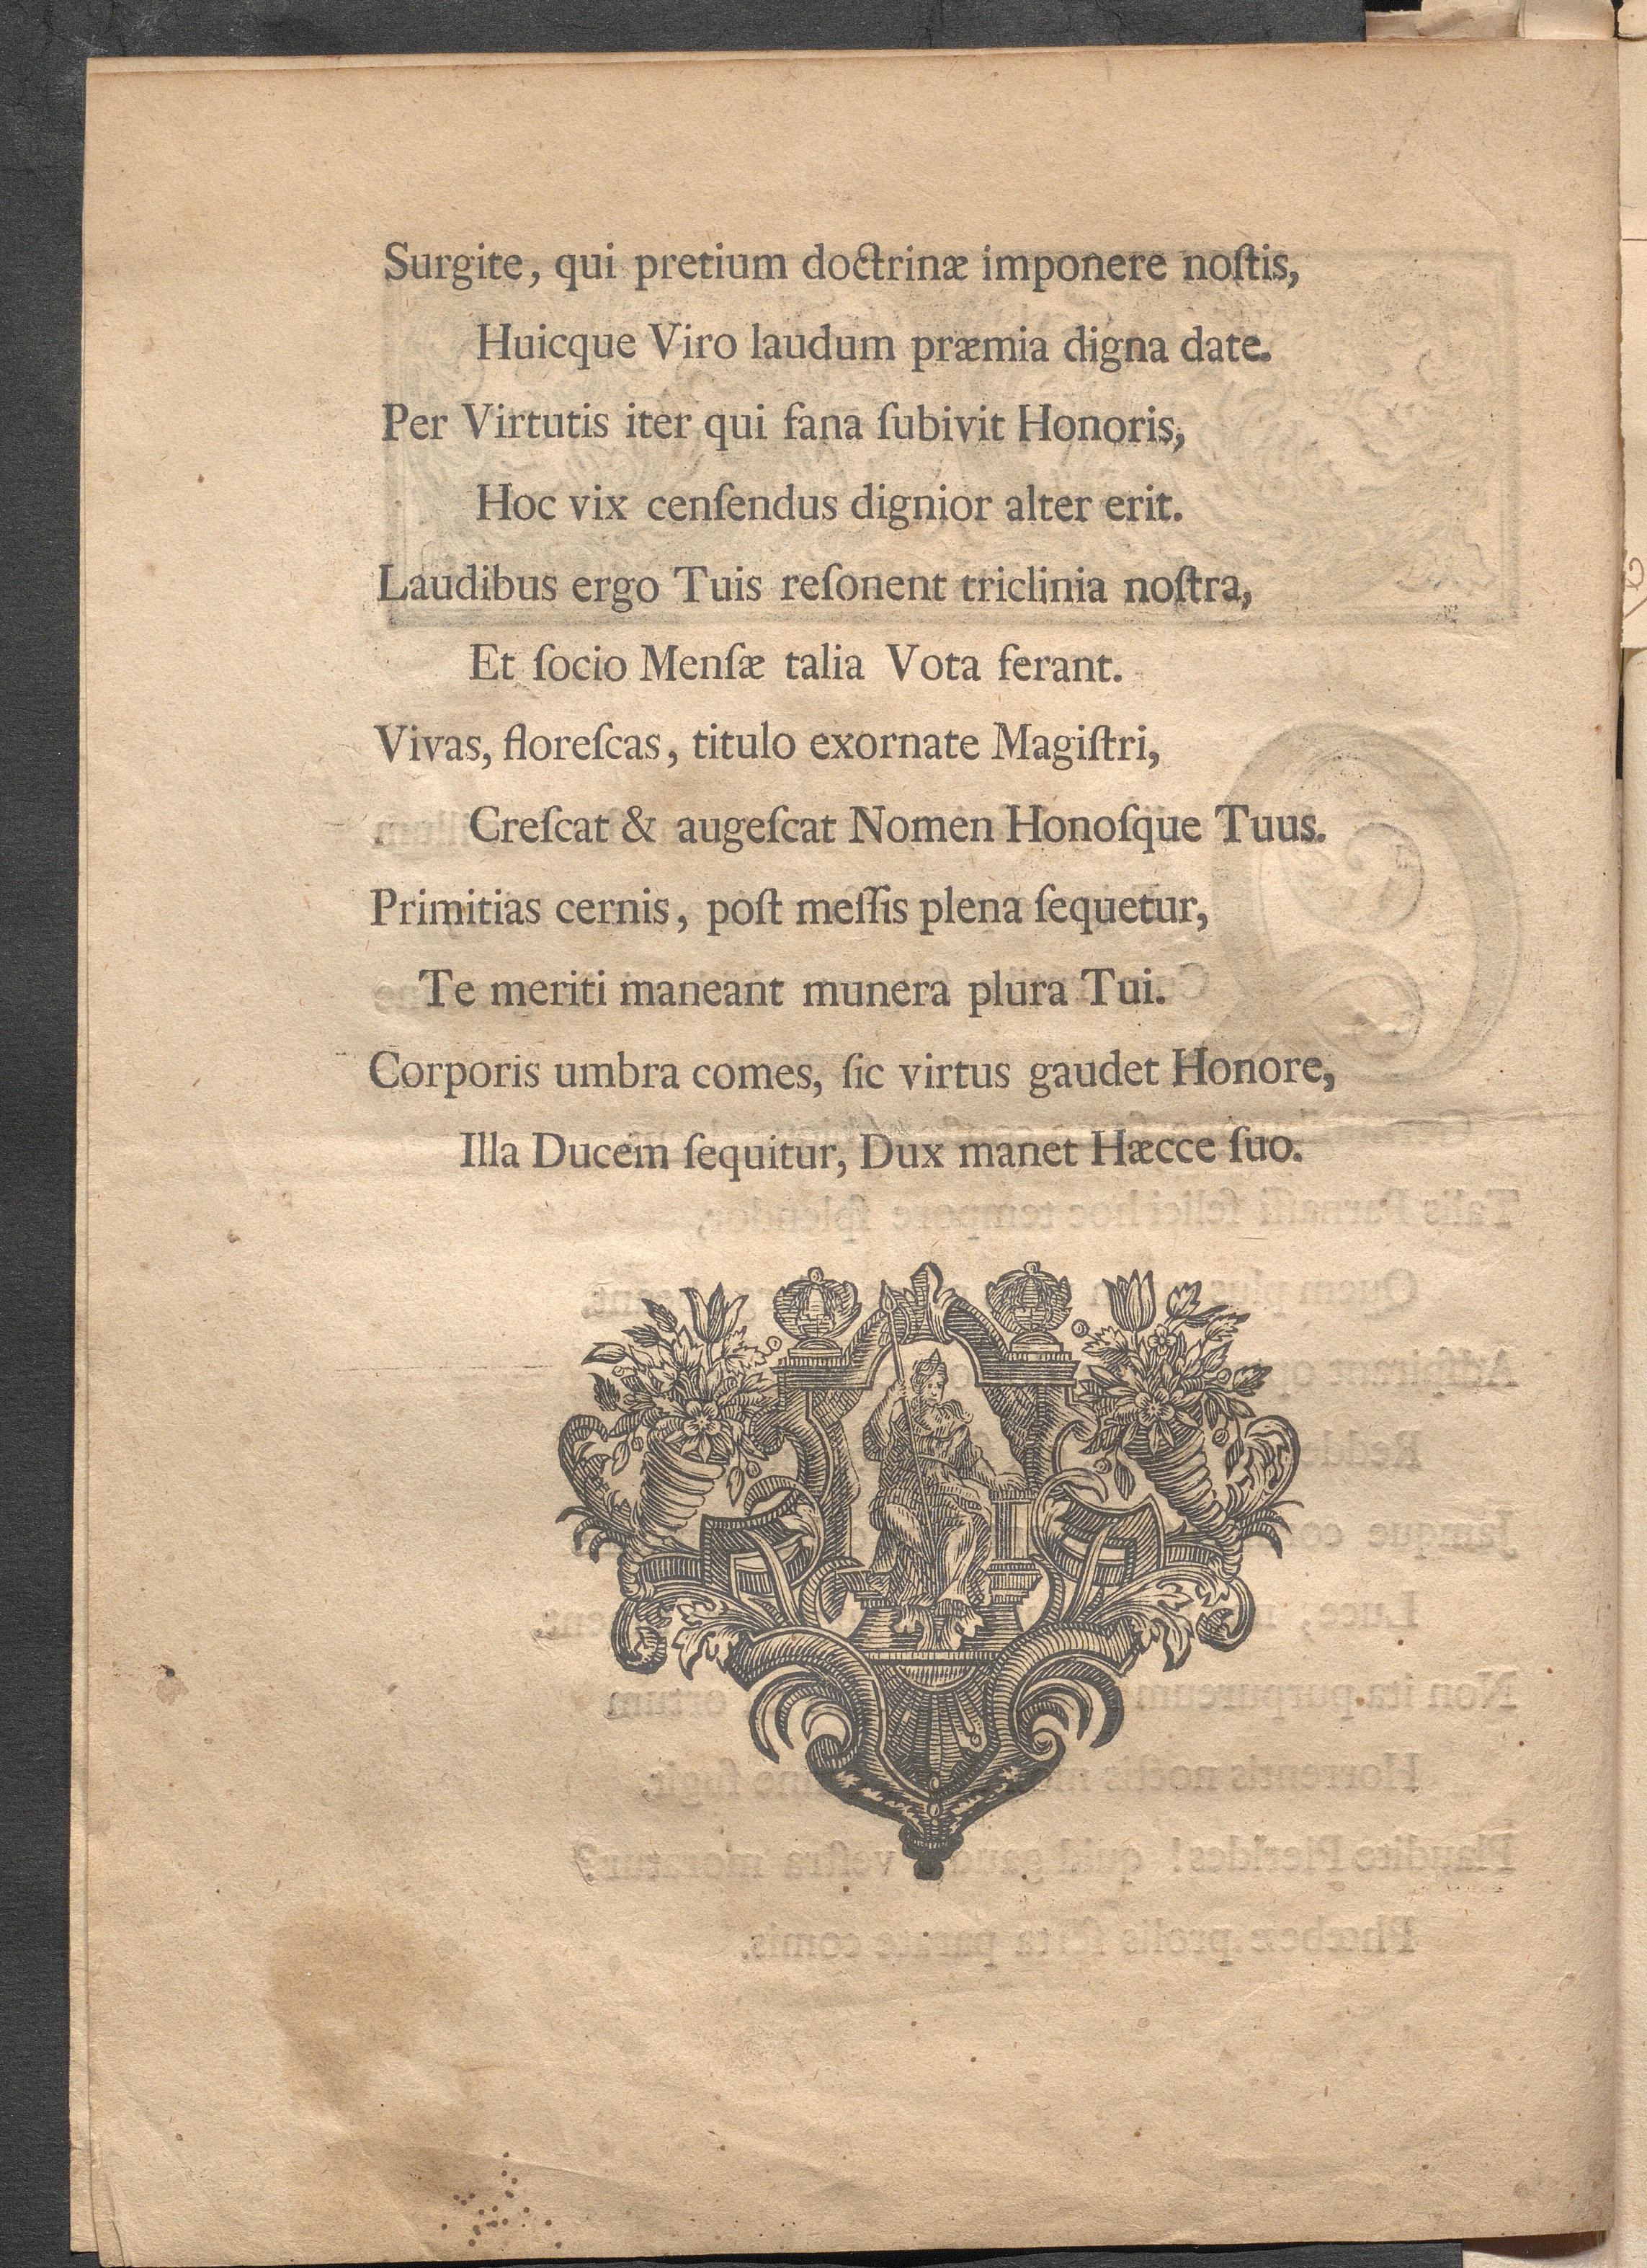 Surgite, qui pretium doctrinæ imponere noſtis,
Huicque Viro laudum præmia digna date.
Per Virtutis iter qui fana ſubivit Honoris,
Hoc vix cenſendus dignior alter erit.
Laudibus ergo Tuis reſonent triclinia noſtra,
Et ſocio Menſæ talia Vota ferant.
Vivas, floreſcas, titulo exornate Magiſtri,
Creſcat & augeſcat Nomen Honoſque Tuus.
Primitias cernis, poſt meſſis plena ſequetur,
Te meriti maneant munera plura Tui.
Corporis umbra comes, ſic virtus gaudet Honore,
Illa Ducem ſequitur, Dux manet Hæcce ſuo.